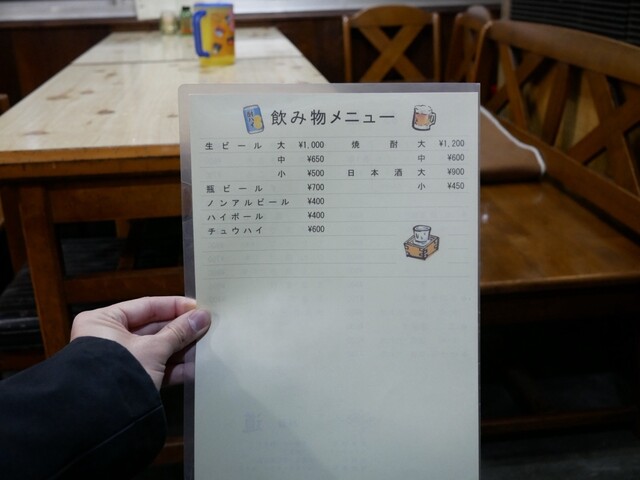 飲み物メニュー
生ビール 大 ¥1,000
中 ¥650
小 ¥500
瓶ビール ¥700
ノンアルビール ¥400
ハイボール ¥400
チュウハイ ¥600
焼酎 大 ¥1,200
中 ¥600
日本酒 大 ¥900
小 ¥450